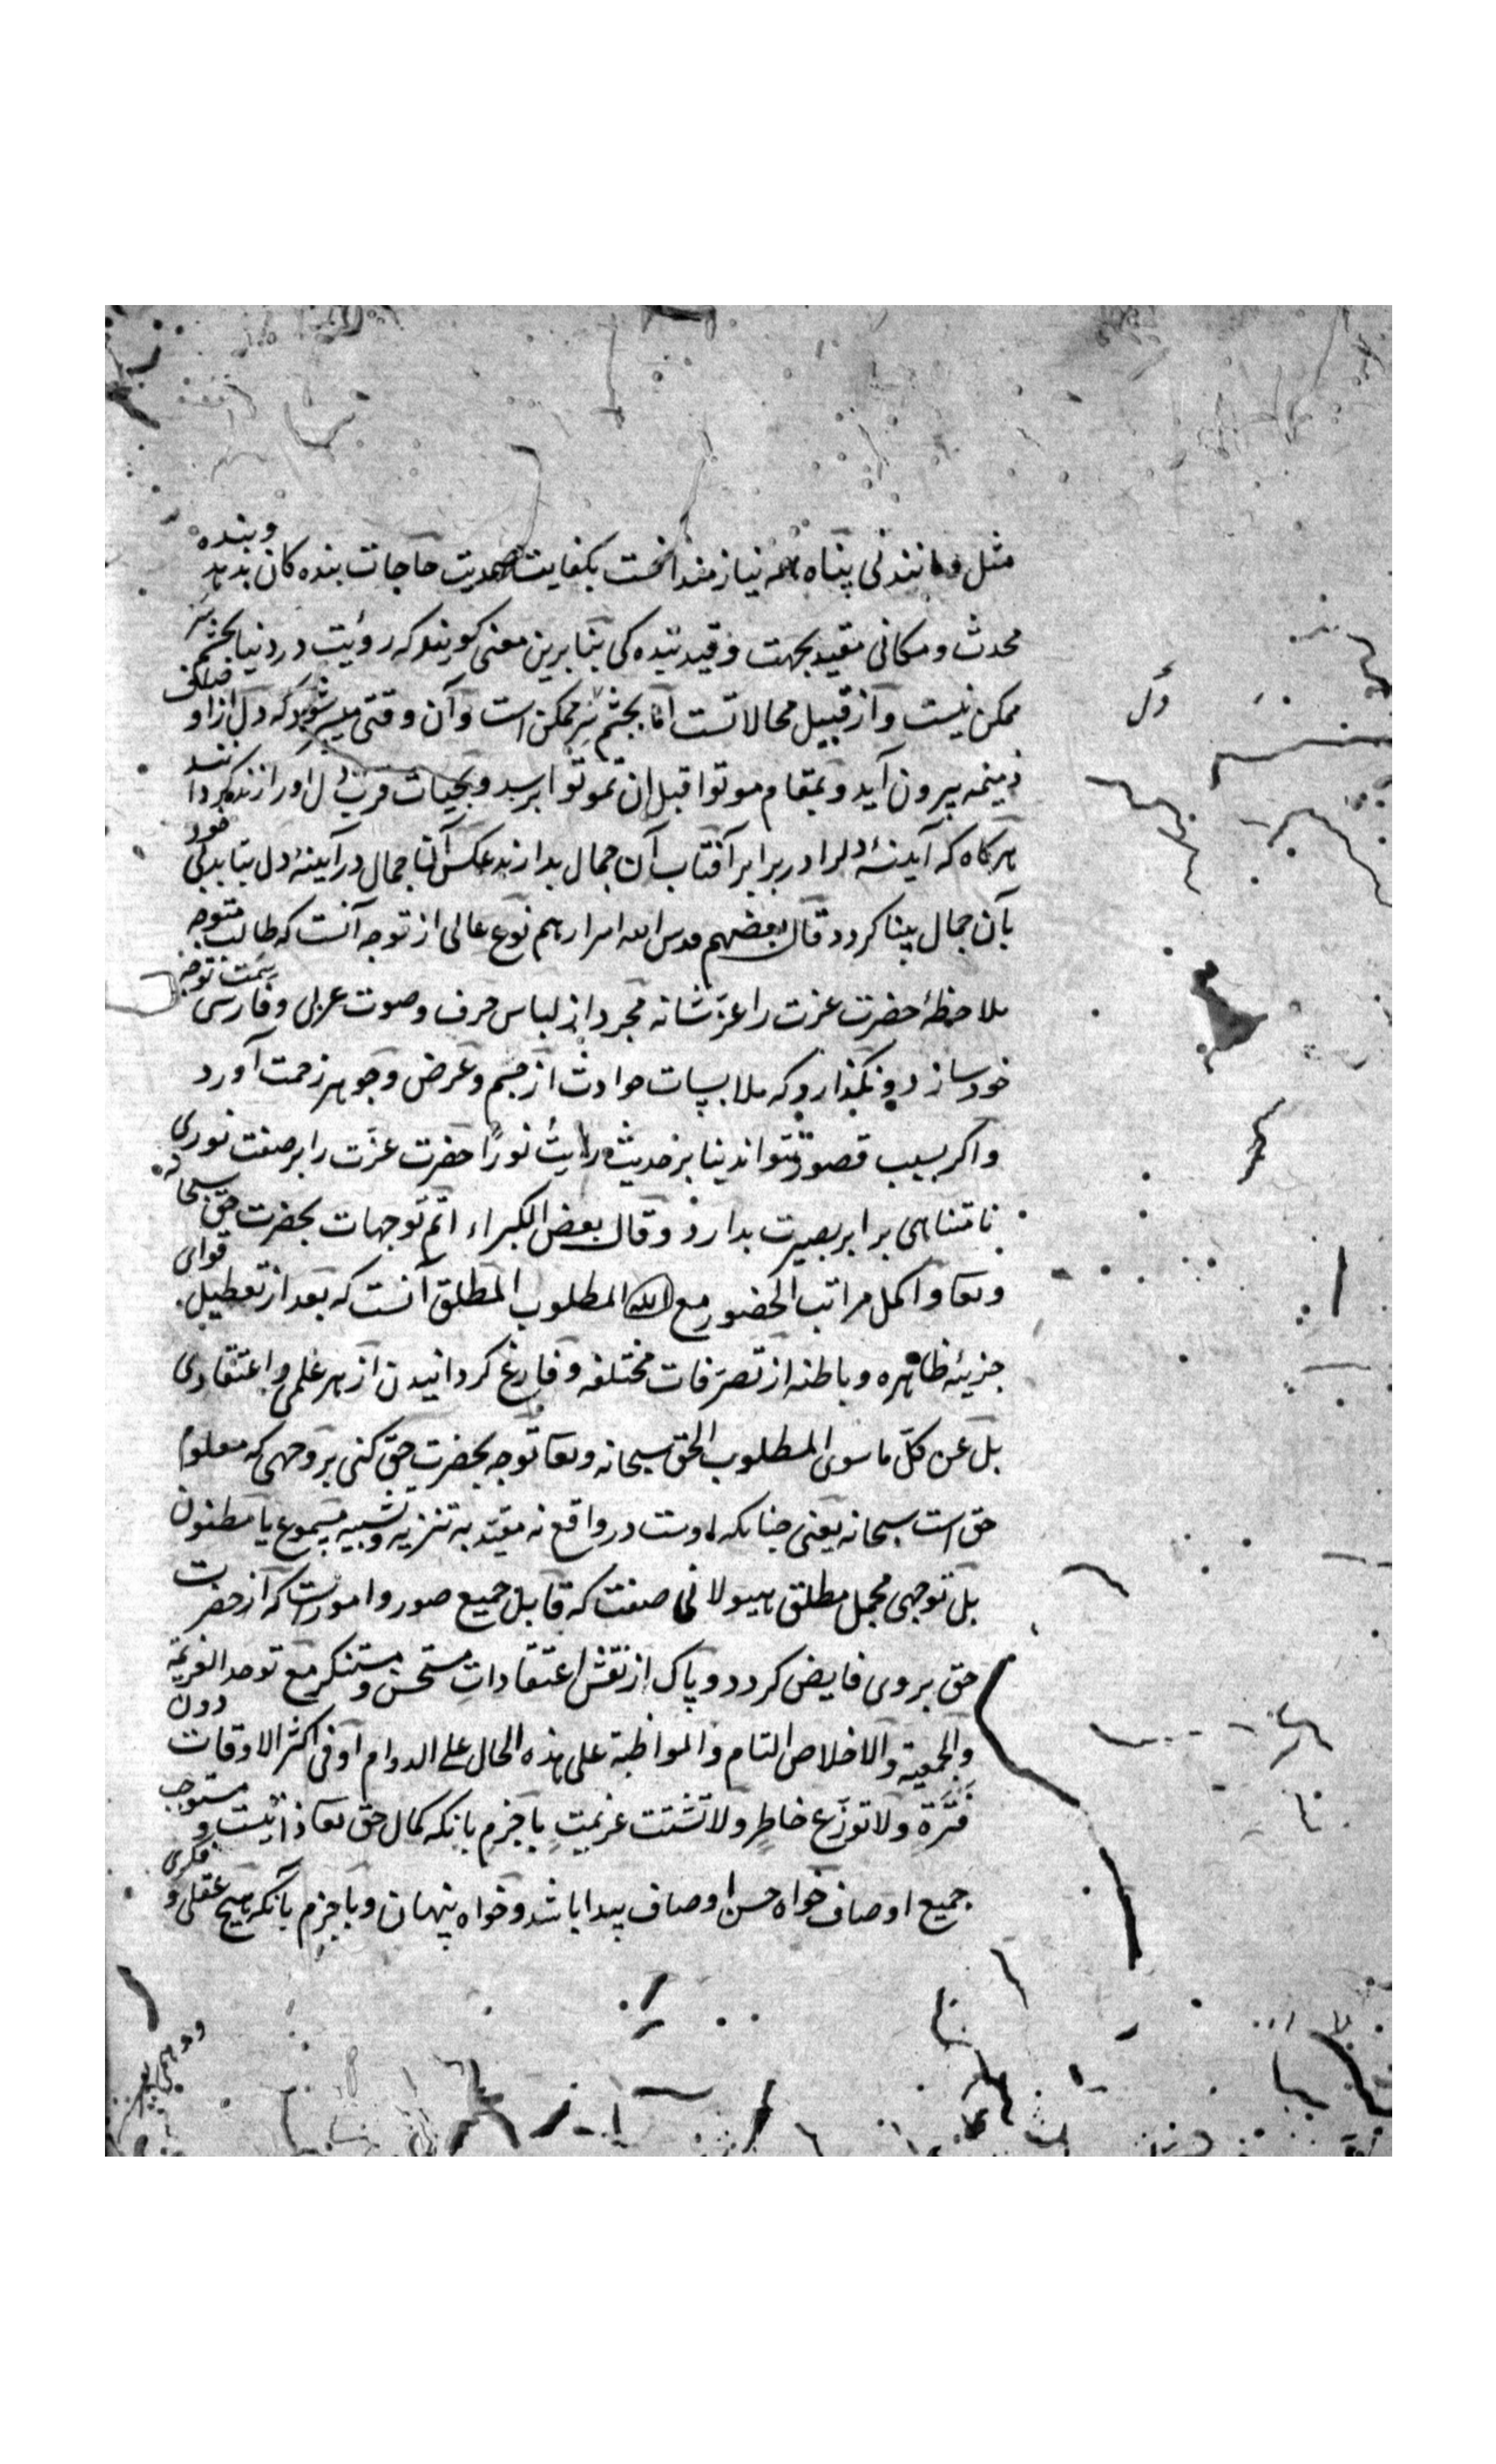 مثل و مانند نی پناه همه نیازمندانست بکفایت صمدیت حاجات بنده کان بدهد و بنده
محدث و مکانی مقید بجهت و قید دیده کی بنابرین معنی کویند که رؤیت در دنیا بچشم سر
ممکن نیست و از قبیل محالاتست اما بچشم سر ممکن است و آن وقتی میسر شود که دل از اوصاف
ذمیمه بیرون آید و بمقام موتوا قبل ان تموتوا برسد و بحیات قربت دل او را زنده کردانند
هرکاه که آینهٔ دلرا در برابر آفتاب آن جمال بدارند عکس آن جمال در آینهٔ دل بتابد
بآن جمال بینا کردد قال بعضهم قدس الله اسرارهم نوع عالی از توجه آنست که طالب متوجه
ملاحظهٔ حضرت عزت را عزّ شانه مجرد از لباس حرف و صوت عربی و فارسی سمت توجه
خود سازد و نکذارد که ملابسات حوادث از جسم و عرض و جوهر زحمت آورد
واکر بسبب قصور نتواند بنا بر حدیث رایت نورًا حضرت عزّت را بر صفت نوری
نامتناهی برابر بصیرت بدارد و قال بعض الکبراء اتم توجهات بحضرت حق سبحانه
وتعا و اکمل مراتب الحضور مع الله المطلوب المطلق آنست که بعد از تعطیل قوای
جزیئهٔ ظاهره و باطنه از تصرفات مختلفه و فارغ کردانیدن از هر علمی و اعتقادی
بل عن کلّ ما سوی المطلوب الحق سبحانه وتعا توجه بحضرت حق کنی بر وجهی که معلوم
حق است سبحانه یعنی چنانکه اوست در واقع نه مقیّد به تنزیه و تشبیه مسموع یا مظنون
بل توجهی مجمل مطلق هیولانی صفت که قابل جمیع صور و اموریست که از حضرت
حق بروی فایض کردد و پاک از نقش اعتقادات مستحسن و مستنکر مع توحد العزیمة
والجمعیة والاخلاص التام والمواظبة علی هذه الحال علی الدوام او فی اکثر الاوقات دون
فترة ولا توزّع خاطر ولا تشتت عزیمت با جزم بانکه کمال حق تعا ذاتیست و مستوعب
جمیع اوصاف خواه حسن اوصاف پیدا باشد و خواه پنهان و با جزم بآنکه هیچ عقلی و فکری
دل
و وهمی